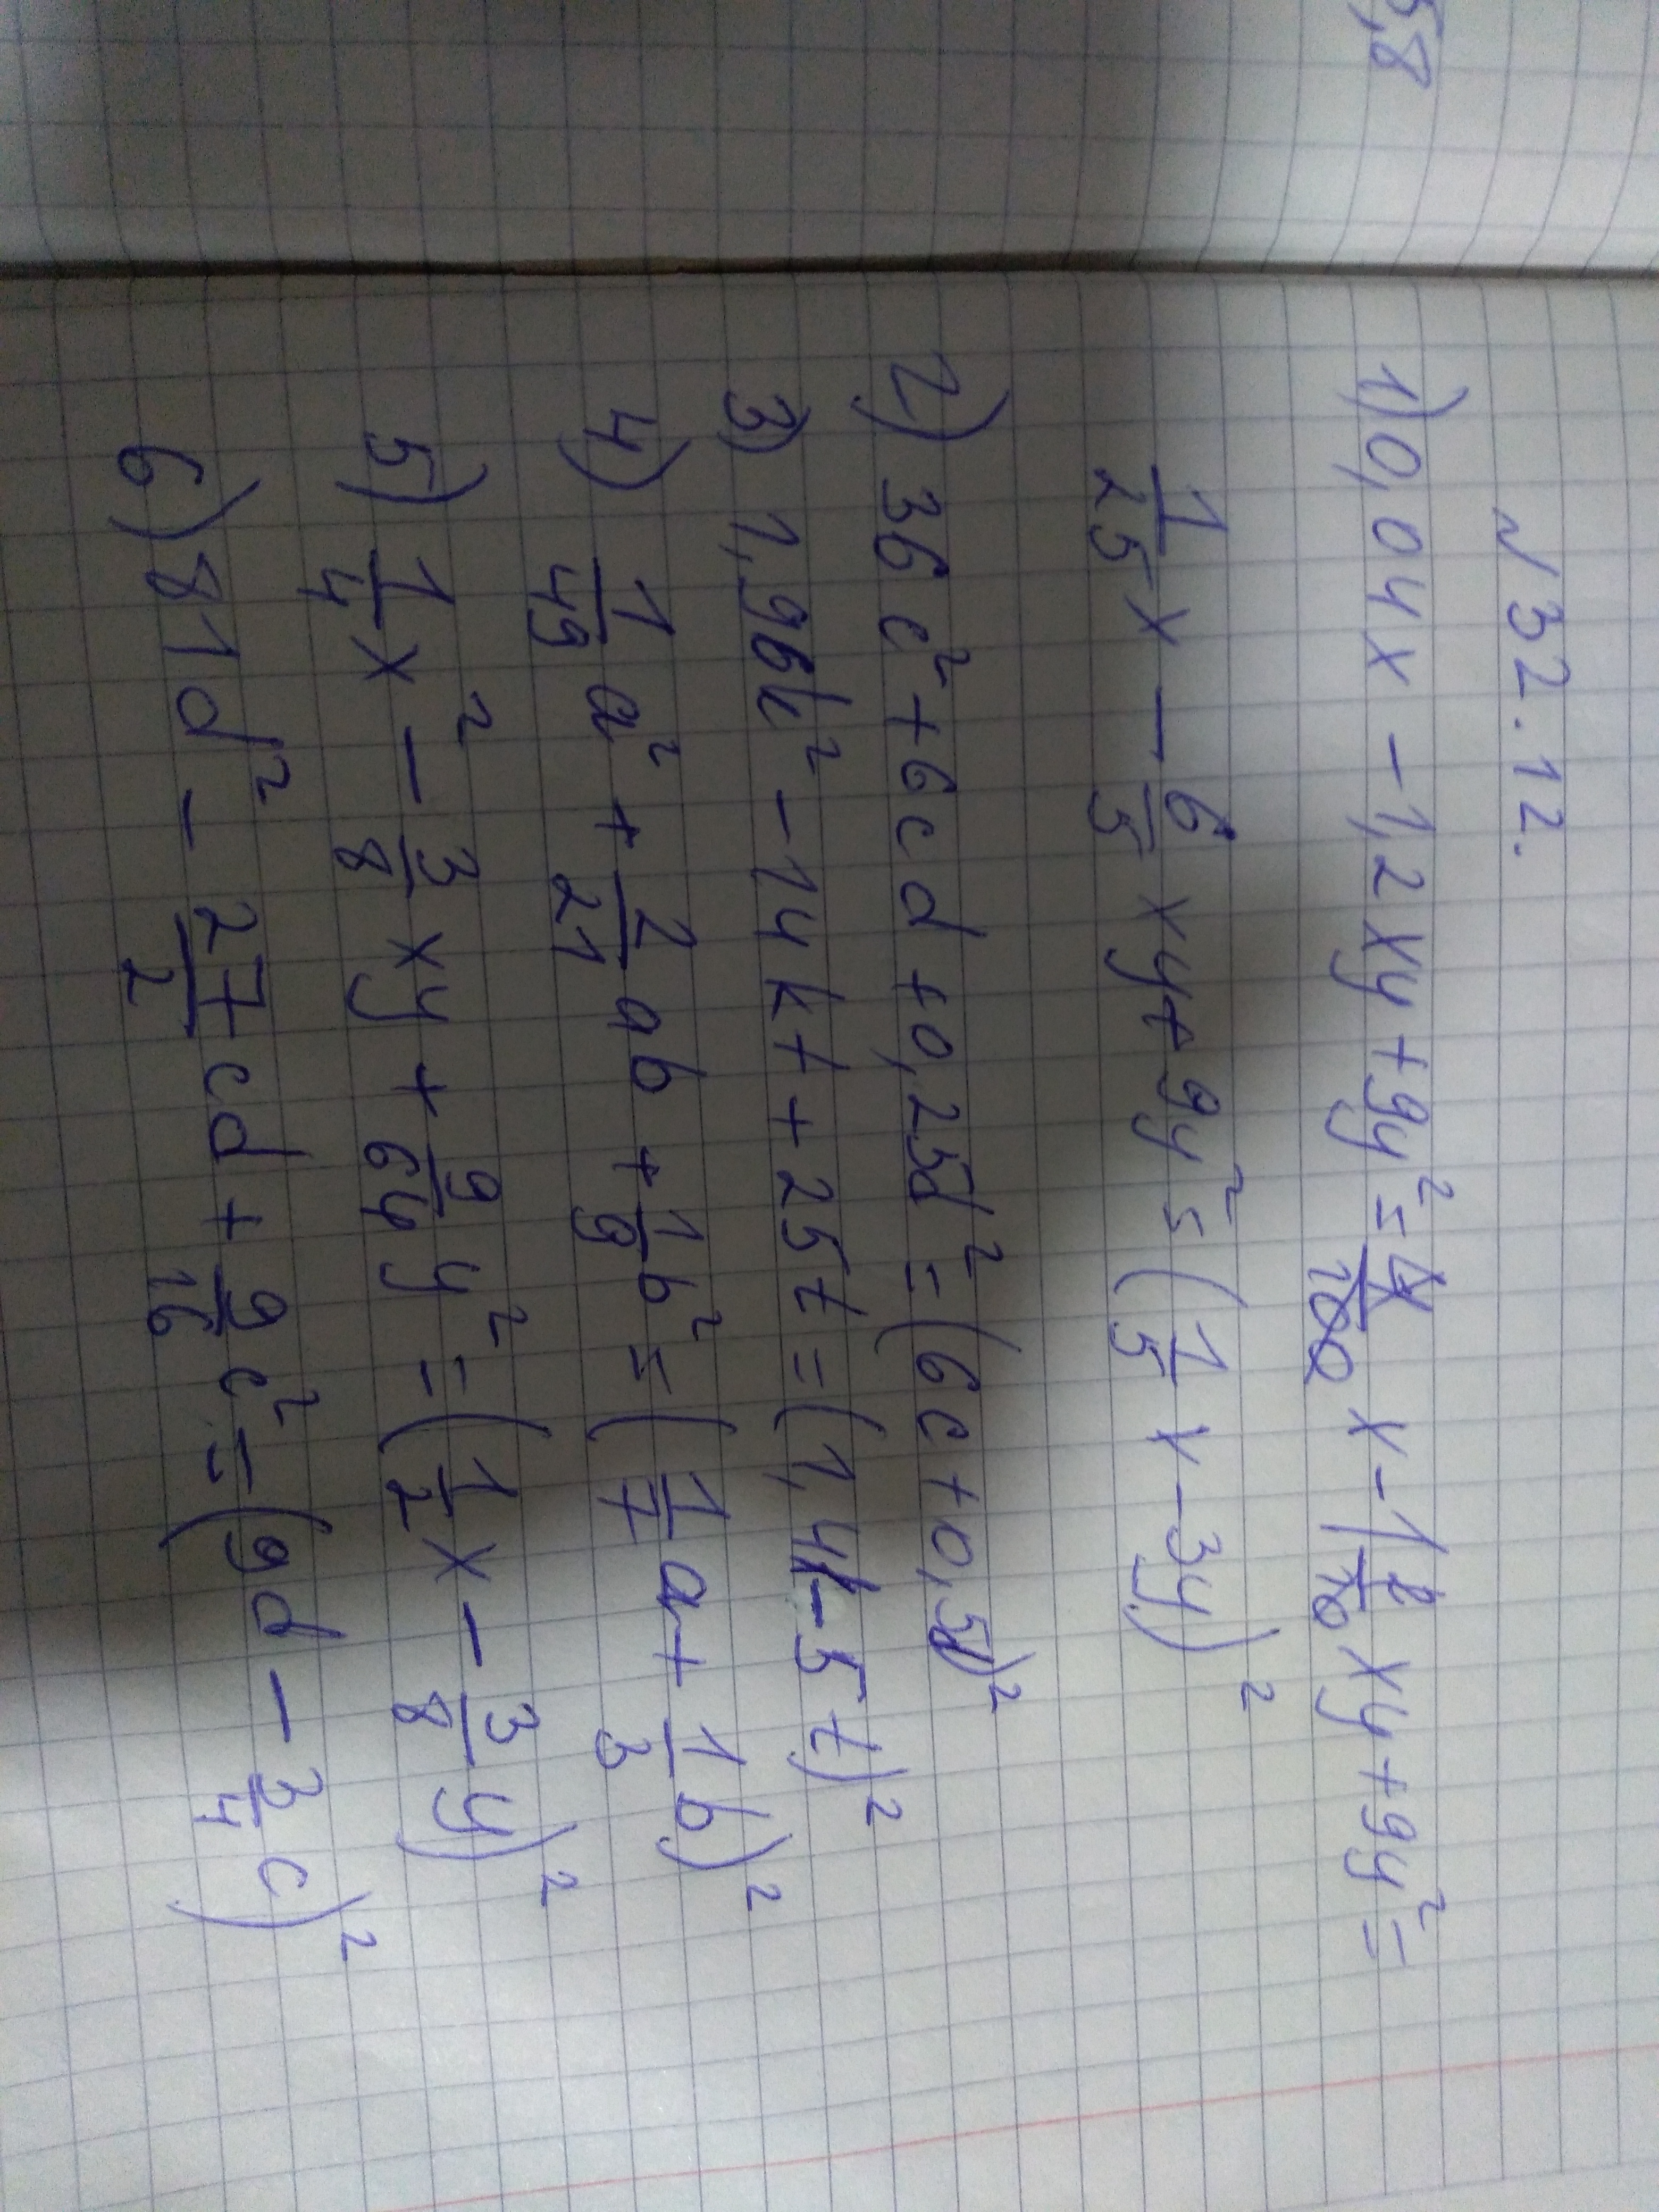 5,8
№32.12.
1) 0,04x - 1,2xy + 9y² = 4/100 x - 1 2/10 xy + 9y² =
1/25 x - 6/5 xy + 9y² = (1/5 x - 3y)²
2) 36c² + 6cd + 0,25d² = (6c + 0,5d)²
3) 1,96k² - 14kt + 25t = (1,4k - 5t)²
4) 1/49 a² + 2/21 ab + 1/9 b² = (1/7 a + 1/3 b)²
5) 1/4 x² - 3/8 xy + 9/64 y² = (1/2 x - 3/8 y)²
6) 81d² - 27/2 cd + 9/16 c² = (9d - 3/4 c)²